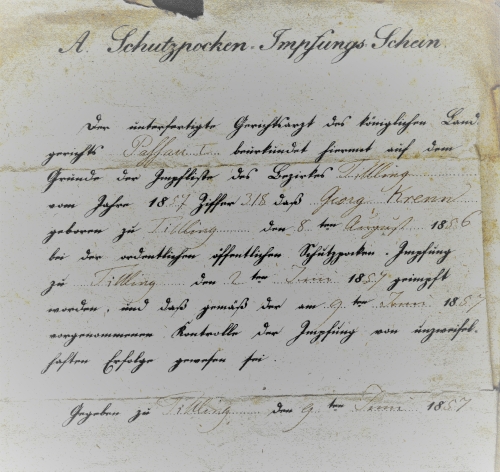 A. Schutzpocken-Impfungs-Schein
Der unterfertigte Gerichtsarzt des königlichen Land
gerichts Passau I beurkundet hiermit auf dem
Grunde der Impfliste des Bezirkes Tittling
vom Jahre 1857 Ziffer 318 daß Georg Krenn
geboren zu Tittling den 8 ten August 1856
bei der ordentlichen öffentlichen Schutzpocken-Impfung
zu Tittling den 2 ten Juni 1857 geimpft
worden, und daß gemäß der am 9 ten Juni 1857
vorgenommenen Kontrolle der Impfung von unzweifel-
haften Erfolge gewesen sei.
Gegeben zu Tittling den 9 ten Juni 1857